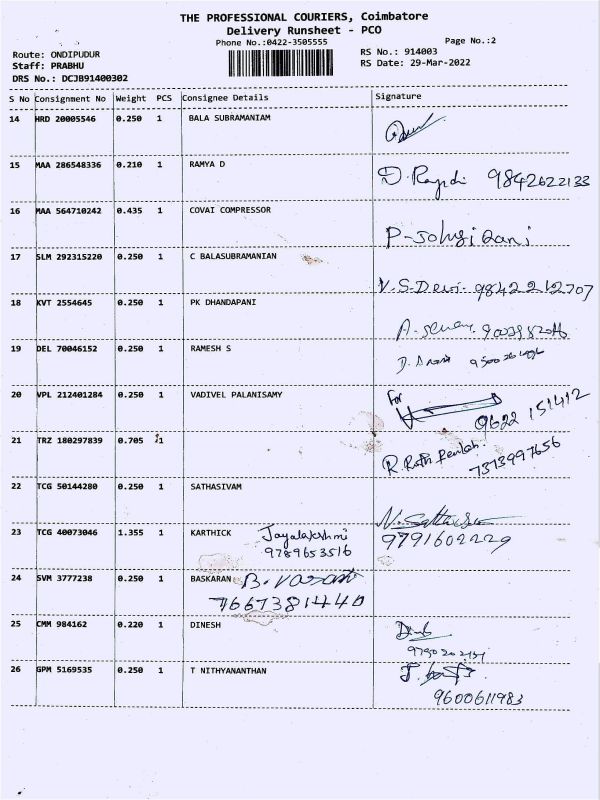 THE PROFESSIONAL COURIERS, Coimbatore
Delivery Runsheet - PCO
Phone No.:0422-3505555
Page No.:2
Route: ONDIPUDUR
RS No.: 914003
Staff: PRABHU
RS Date: 29-Mar-2022
DRS No.: DCJB91400302
S No Consignment No Weight PCS Consignee Details Signature
14 HRD 20005546 0.250 1 BALA SUBRAMANIAM
15 MAA 286548336 0.210 1 RAMYA D
9842622133
16 MAA 564710242 0.435 1 COVAI COMPRESSOR
17 SLM 292315220 0.250 1 C BALASUBRAMANIAN
V.S.Devi. 9842212707
18 KVT 2554645 0.250 1 PK DHANDAPANI
19 DEL 70046152 0.250 1 RAMESH S
20 VPL 212401284 0.250 1 VADIVEL PALANISAMY
For
9622 151412
21 TRZ 180297839 0.705 1
7373997656
22 TCG 50144280 0.250 1 SATHASIVAM
23 TCG 40073046 1.355 1 KARTHICK Jayalakshmi
9789653516
9791602229
24 SVM 3777238 0.250 1 BASKARAN B. Vasanti
7667381440
25 CMM 984162 0.220 1 DINESH
26 GPM 5169535 0.250 1 T NITHYANANTHAN
9600611983